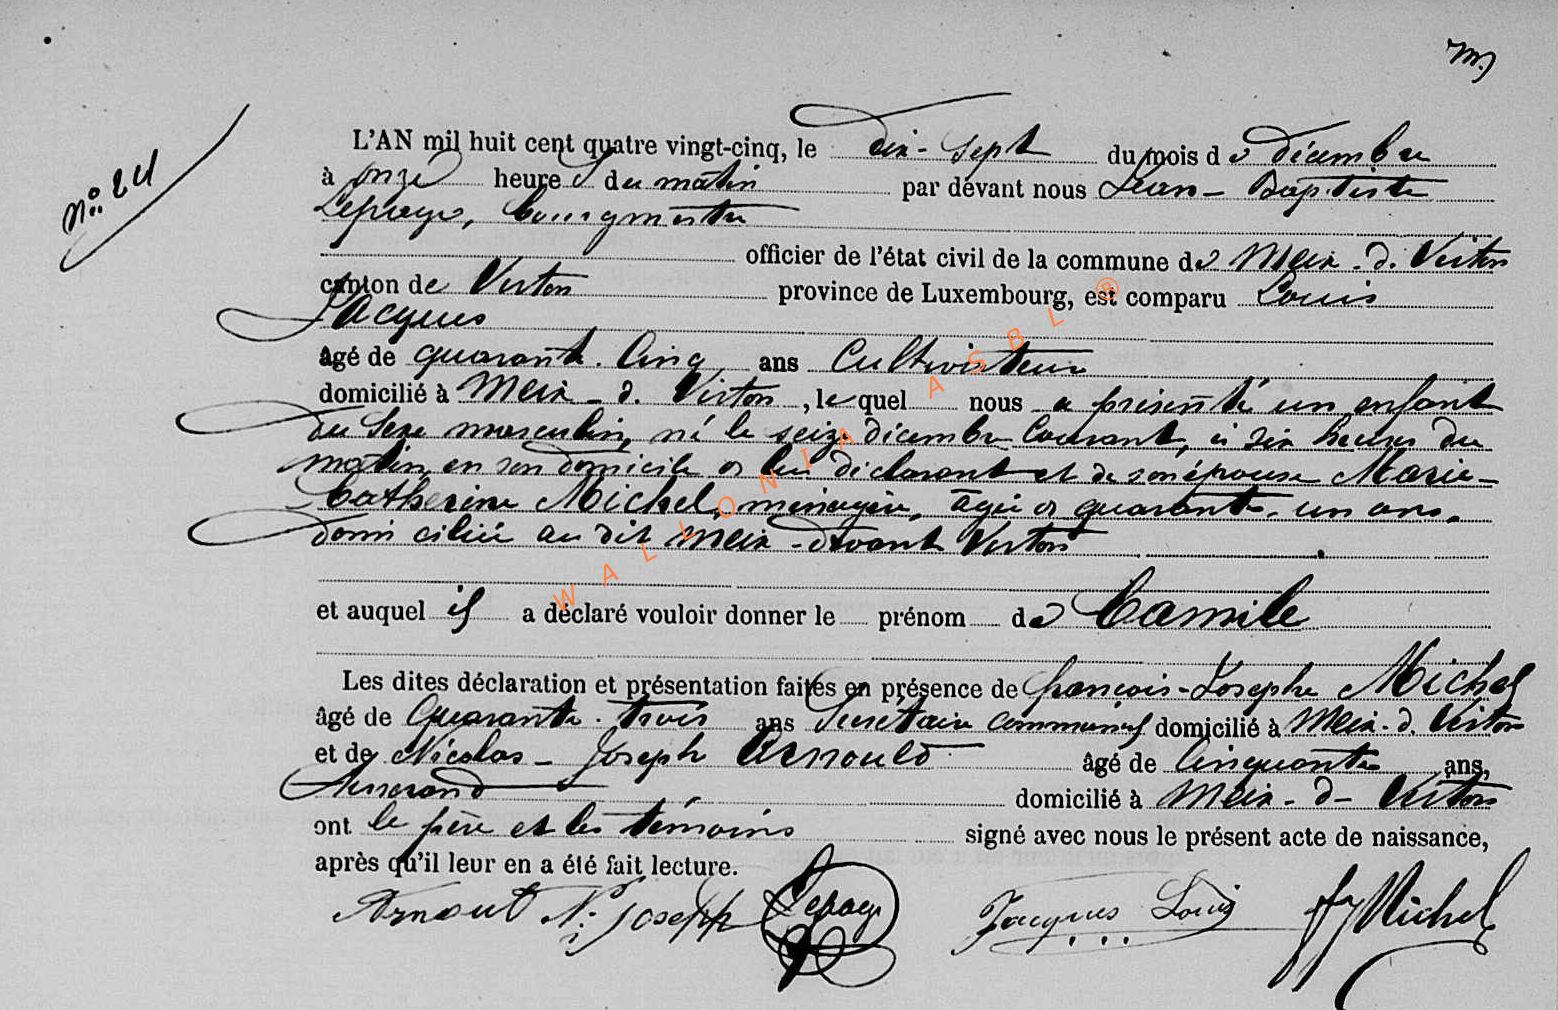 m
N° 24
L'AN mil huit cent quatre vingt-cinq, le dix-sept du mois de décembre
à onze heures du matin par devant nous Jean-Baptiste
Lepage, bourgmestre
officier de l'état civil de la commune de Meix-d.Virton
canton de Virton province de Luxembourg, est comparu Louis
Jacques
âgé de quarante-cinq ans Cultivateur
domicilié à Meix-d.Virton, lequel nous a présenté un enfant
du sexe masculin, né le seize décembre courant, à six heures du
matin, en son domicile de lui déclarant et de son épouse Marie-
Catherine Michel, ménagère, âgée de quarante-un ans,
domiciliée au dit Meix-devant Virton.
et auquel il a déclaré vouloir donner le prénom de Camile
Les dites déclaration et présentation faites en présence de françois-Joseph Michel
âgé de Quarante-trois ans Secrétaire communal domicilié à Meix-d.Virton
et de Nicolas-Joseph Arnould âgé de Cinquante ans,
domicilié à Meix-d-Virton
ont le père et les témoins signé avec nous le présent acte de naissance,
après qu'il leur en a été fait lecture.
Arnout N. Joseph Lepage Jacques Louis fJMichel
WALLONIA ASBL ®